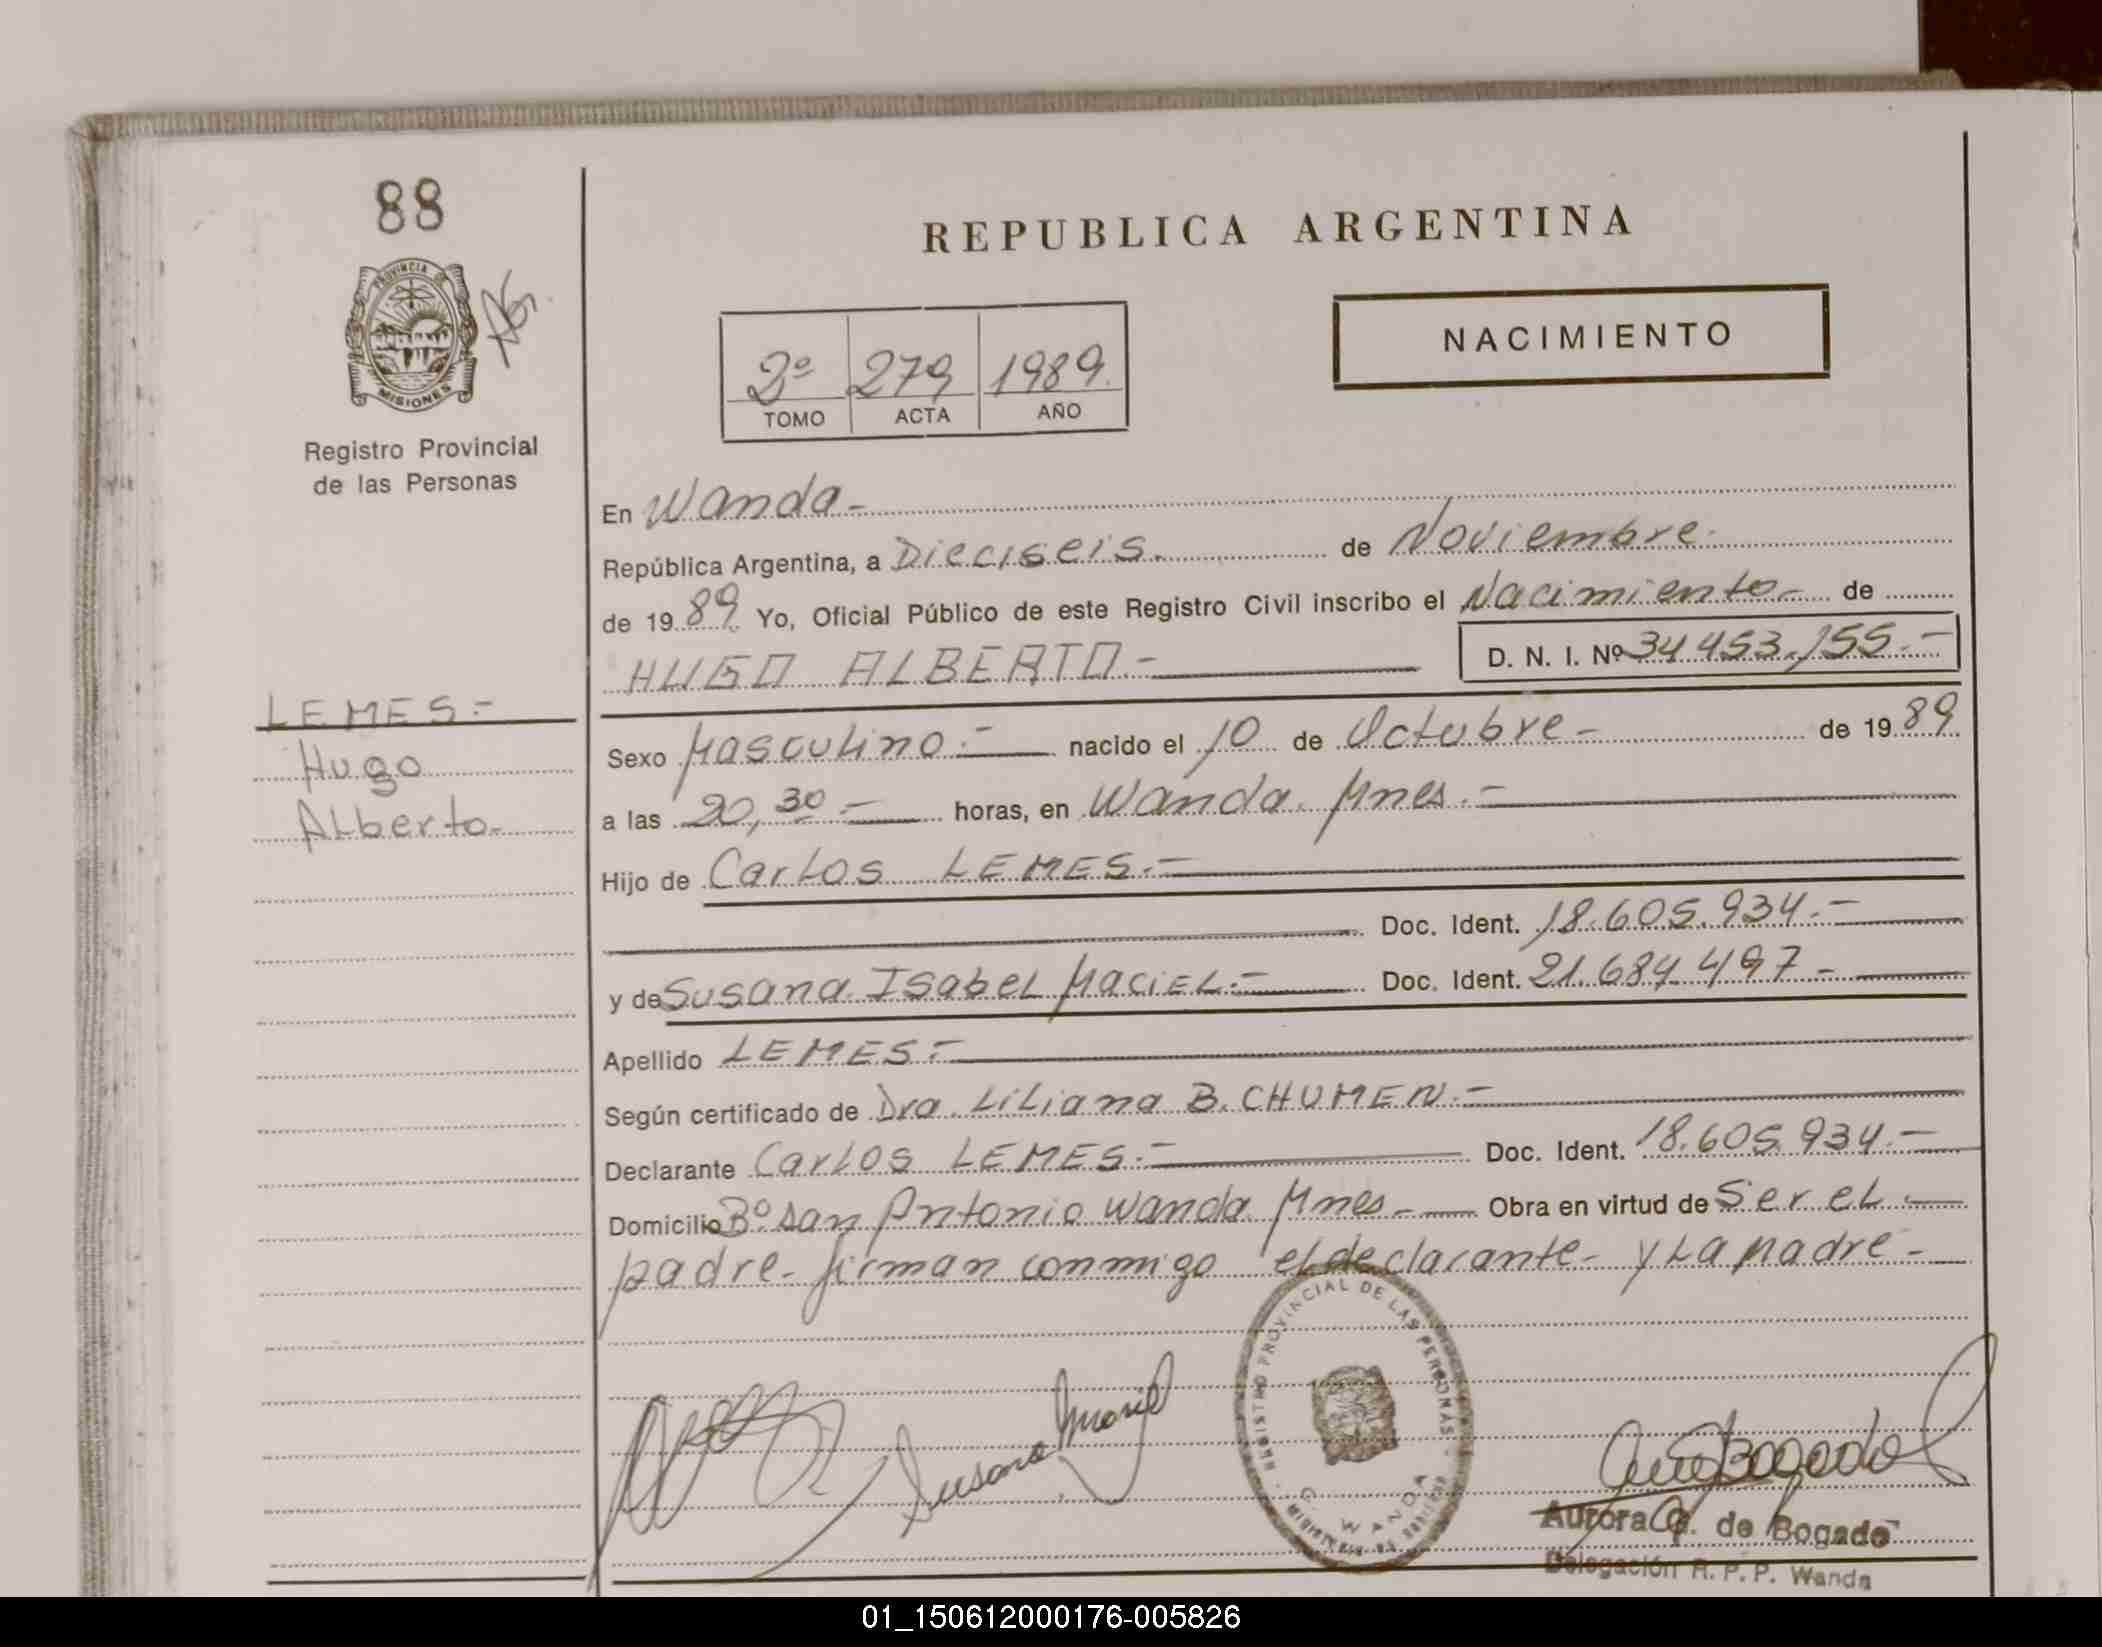 88
PROVINCIA DE
MISIONES
Registro Provincial
de las Personas
LEMES.-
Hugo
Alberto.-
REPUBLICA ARGENTINA
NACIMIENTO
2º 279 1989.
TOMO ACTA AÑO
En Wanda.-
República Argentina, a Dieciseis. de Noviembre.
de 1989. Yo, Oficial Público de este Registro Civil inscribo el Nacimiento.- de
HUGO ALBERTO.- D. N. I. Nº 34.453.155.-
Sexo Masculino.- nacido el 10 de Octubre.- de 1989.
a las 20,30.- horas, en Wanda. Mnes.-
Hijo de Carlos LEMES.-
Doc. Ident. 18.605.934.-
y de Susana Isabel Maciel.- Doc. Ident. 21.684.497.-
Apellido LEMES.-
Según certificado de Dra. Liliana B. CHUMEN.-
Declarante Carlos LEMES.- Doc. Ident. 18.605.934.-
Domicilio Bº San Antonio Wanda Mnes.- Obra en virtud de Ser el.-
padre.- firman conmigo el declarante.- y La madre.-
REGISTRO PROVINCIAL DE LAS PERSONAS
WANDA
Susana Maciel
Aurora G. de Bogado
Delegación R. P. P. Wanda
01_150612000176-005826